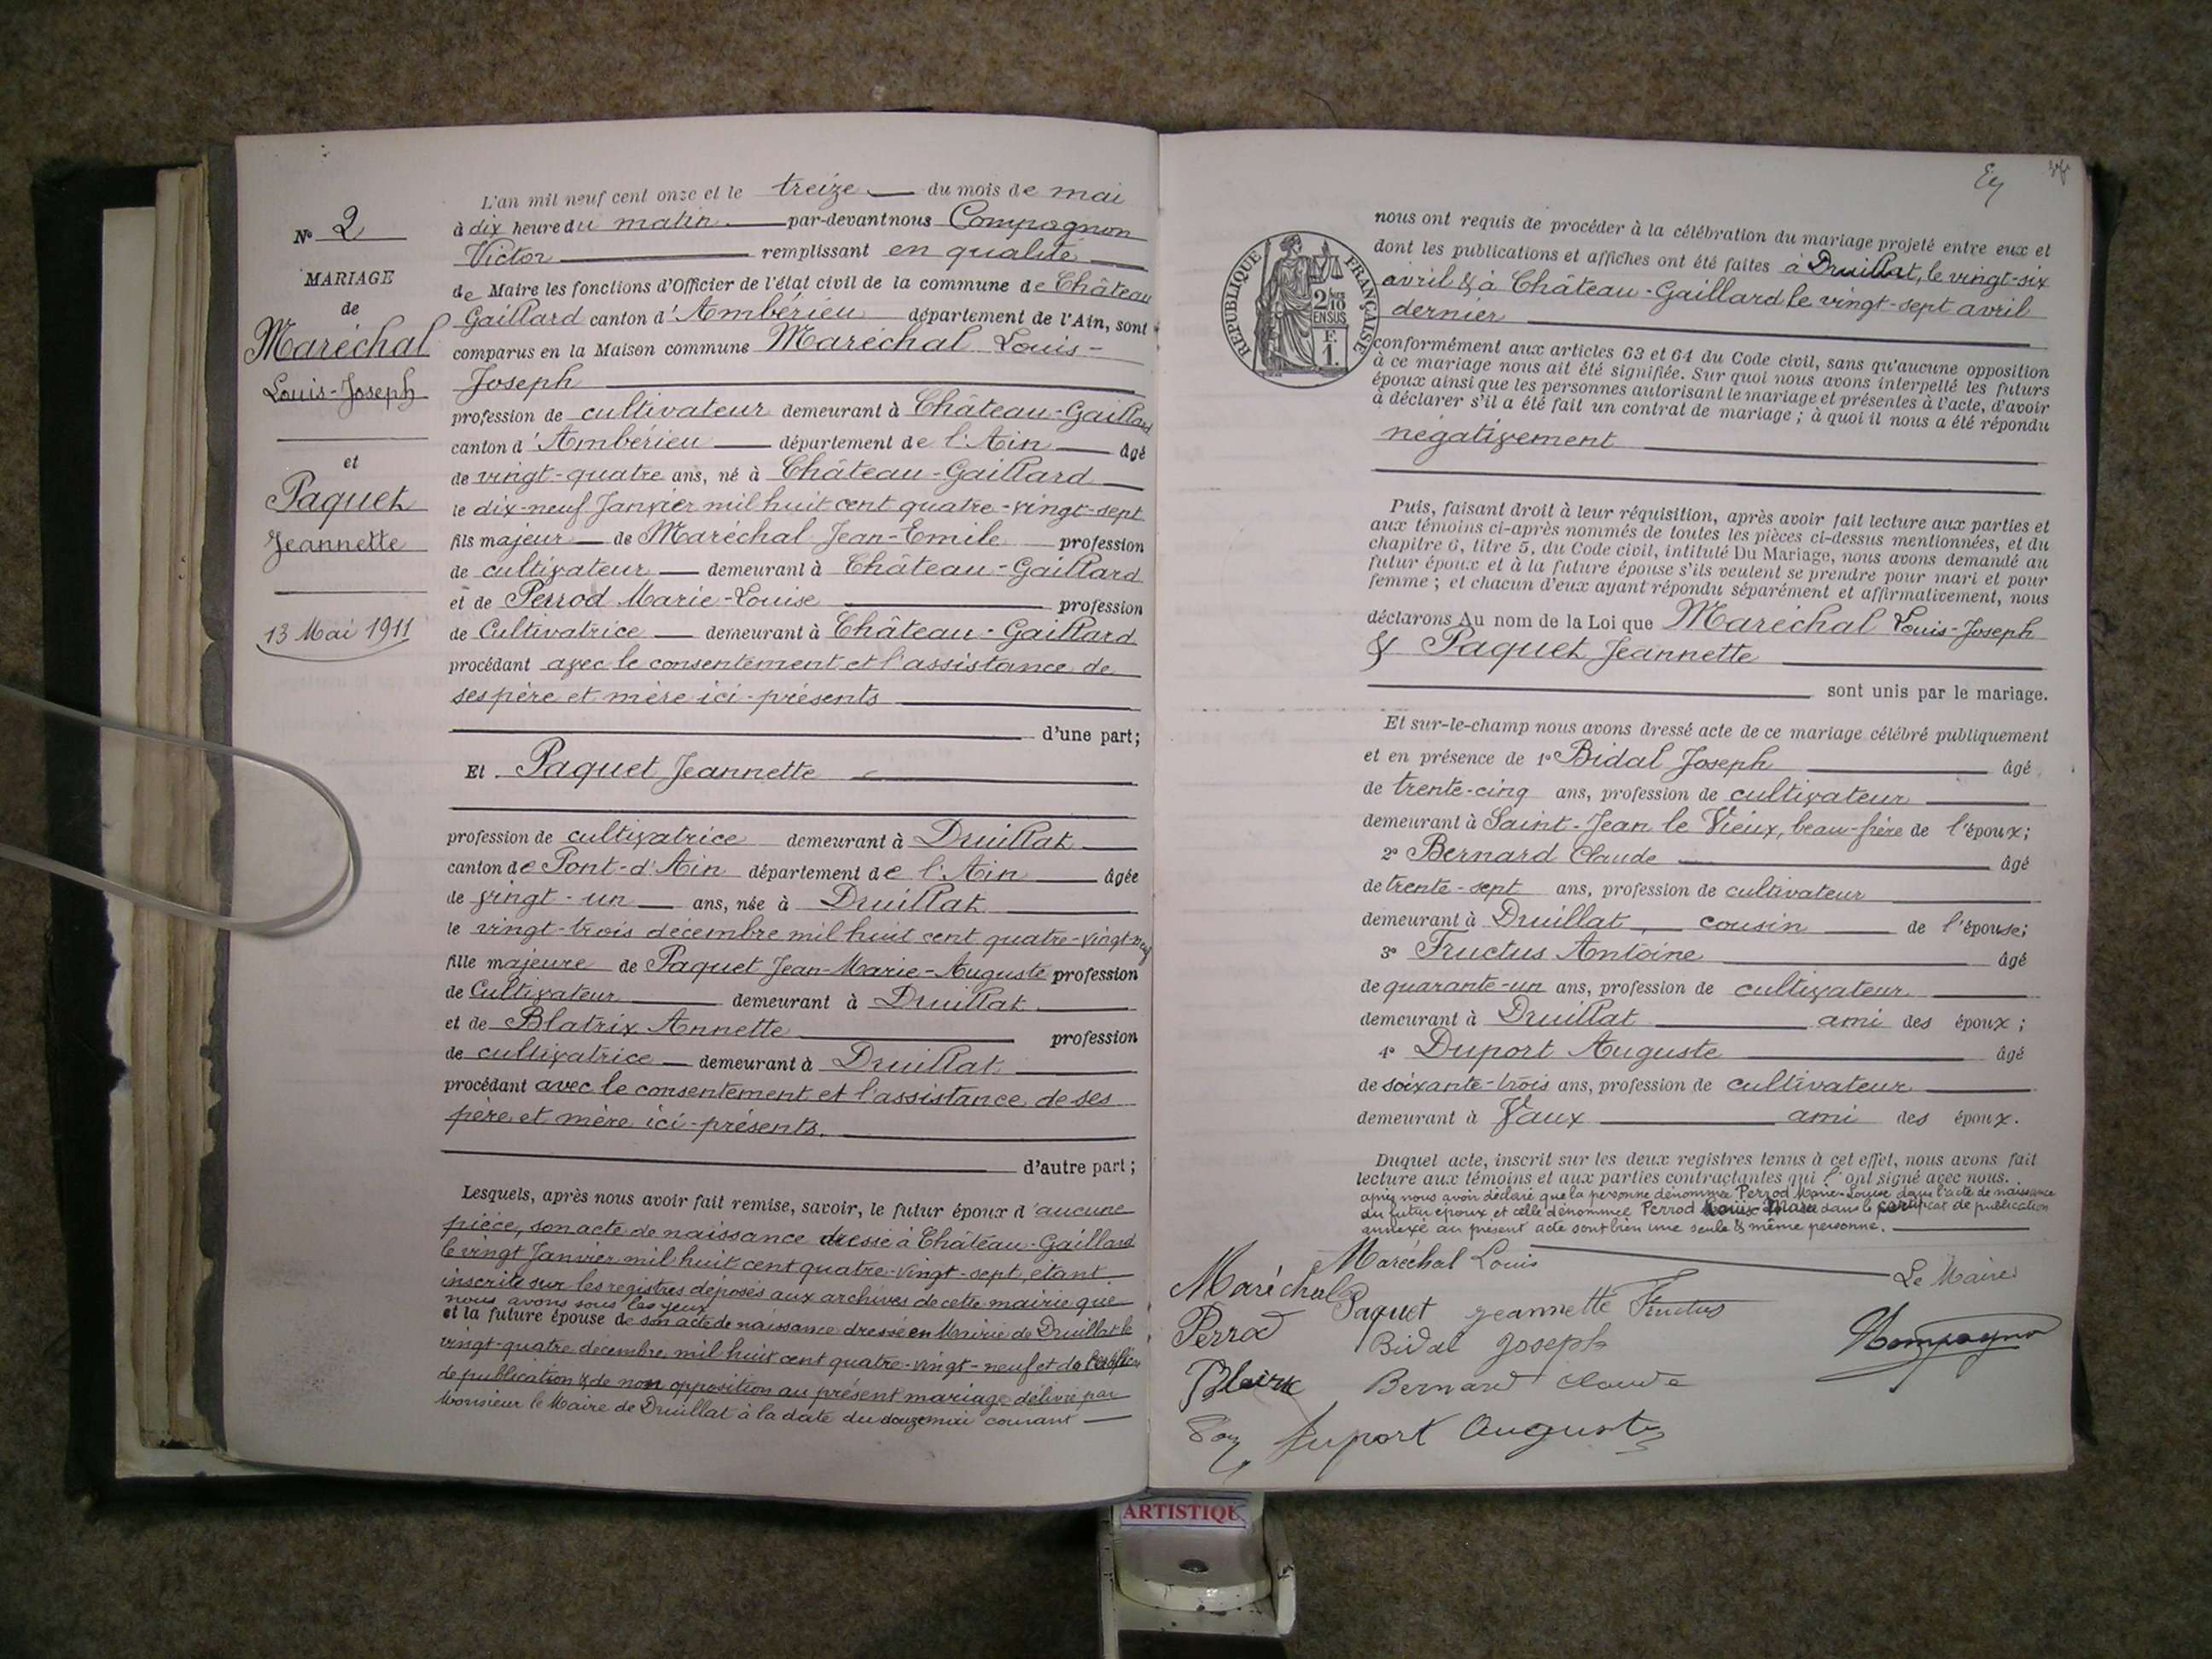 N° 2
MARIAGE
de
Maréchal
Louis-Joseph
et
Paquet
Jeannette
13 Mai 1911
L'an mil neuf cent onze et le treize du mois de mai
à dix heure du matin par-devant nous Compagnon
Victor remplissant en qualité
de Maire les fonctions d'Officier de l'état civil de la commune de Château
Gaillard canton d'Ambérieu département de l'Ain, sont
comparus en la Maison commune Maréchal Louis-
Joseph
profession de cultivateur demeurant à Château-Gaillard
canton d'Ambérieu département de l'Ain âgé
de vingt-quatre ans, né à Château-Gaillard
le dix-neuf Janvier mil huit cent quatre-vingt-sept
fils majeur de Maréchal Jean-Emile profession
de cultivateur demeurant à Château-Gaillard
et de Perrod Marie-Louise profession
de Cultivatrice demeurant à Château-Gaillard
procédant avec le consentement et l'assistance de
ses père et mère ici-présents
d'une part;
Et Paquet Jeannette
profession de cultivatrice demeurant à Druillat
canton de Pont-d'Ain département de l'Ain âgée
de vingt-un ans, née à Druillat
le vingt-trois décembre mil huit cent quatre-vingt-neuf
fille majeure de Paquet Jean-Marie-Auguste profession
de Cultivateur demeurant à Druillat
et de Blatrix Annette profession
de cultivatrice demeurant à Druillat
procédant avec le consentement et l'assistance de ses
père et mère ici-présents.
d'autre part;
Lesquels, après nous avoir fait remise, savoir, le futur époux d'aucune
pièce, son acte de naissance dressé à Château-Gaillard
le vingt Janvier mil huit cent quatre-vingt-sept, étant
inscrite sur les registres déposés aux archives de cette mairie que
nous avons sous les yeux
et la future épouse de son acte de naissance dressé en Mairie de Druillat le
vingt-quatre décembre mil huit cent quatre-vingt-neuf et du certificat
de publication & de non opposition au présent mariage délivré par
Monsieur le Maire de Druillat à la date du douze mai courant
nous ont requis de procéder à la célébration du mariage projeté entre eux et
dont les publications et affiches ont été faites à Druillat, le vingt-six
avril & à Château-Gaillard le vingt-sept avril
dernier
RÉPUBLIQUE FRANÇAISE
2/10
EN SUS
F.
1.
conformément aux articles 63 et 64 du Code civil, sans qu'aucune opposition
à ce mariage nous ait été signifiée. Sur quoi nous avons interpellé les futurs
époux ainsi que les personnes autorisant le mariage et présentes à l'acte, d'avoir
à déclarer s'il a été fait un contrat de mariage; à quoi il nous a été répondu
négativement
Puis, faisant droit à leur réquisition, après avoir fait lecture aux parties et
aux témoins ci-après nommés de toutes les pièces ci-dessus mentionnées, et du
chapitre 6, titre 5, du Code civil, intitulé Du Mariage, nous avons demandé au
futur époux et à la future épouse s'ils veulent se prendre pour mari et pour
femme; et chacun d'eux ayant répondu séparément et affirmativement, nous
déclarons Au nom de la Loi que Maréchal Louis-Joseph
& Paquet Jeannette
sont unis par le mariage.
Et sur-le-champ nous avons dressé acte de ce mariage célébré publiquement
et en présence de 1° Bidal Joseph âgé
de trente-cinq ans, profession de cultivateur
demeurant à Saint-Jean le Vieux, beau-frère de l'époux;
2° Bernard Claude âgé
de trente-sept ans, profession de cultivateur
demeurant à Druillat, cousin de l'épouse;
3° Fructus Antoine âgé
de quarante-un ans, profession de cultivateur
demeurant à Druillat ami des époux;
4° Duport Auguste âgé
de soixante-trois ans, profession de cultivateur
demeurant à Vaux ami des époux.
Duquel acte, inscrit sur les deux registres tenus à cet effet, nous avons fait
lecture aux témoins et aux parties contractantes qui l'ont signé avec nous.
après nous avoir déclaré que la personne dénommée Perrod Marie-Louise dans l'acte de naissance
du futur époux et celle dénommée Perrod Louise Marie dans le certificat de publication
annexé au présent acte sont bien une seule & même personne.
Maréchal Louis
Le Maire
Maréchal
Paquet Jeannette Fructus
Perrod
Bidal Joseph
Compagnon
Bernard Claude
Duport Auguste
ARTISTIQUE